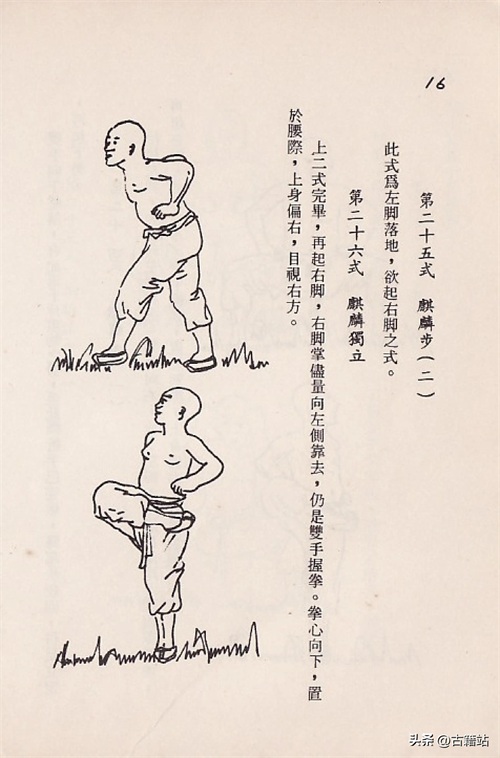 16
第二十五式 麒麟步(二)
此式爲左脚落地,欲起右脚之式。
第二十六式 麒麟獨立
上二式完畢,再起右脚,右脚掌儘量向左側靠去,仍是雙手握拳。拳心向下,置
於腰際,上身偏右,目視右方。
头条 @古籍站